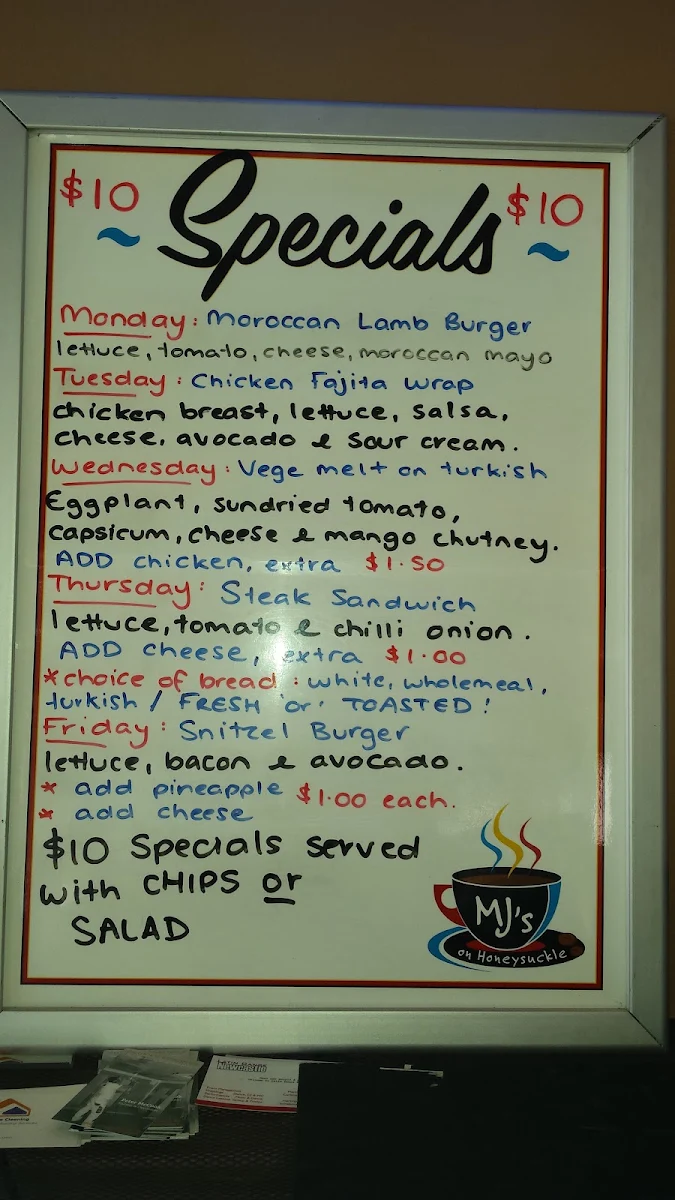 $10 Specials $10
Monday: Moroccan Lamb Burger
lettuce, tomato, cheese, moroccan mayo
Tuesday: Chicken Fajita Wrap
chicken breast, lettuce, salsa,
cheese, avocado & sour cream.
Wednesday: Vege melt on turkish
Eggplant, sundried tomato,
capsicum, cheese & mango chutney.
ADD chicken, extra $1.50
Thursday: Steak Sandwich
lettuce, tomato & chilli onion.
ADD cheese, extra $1.00
*choice of bread: white, wholemeal,
turkish / FRESH 'or' TOASTED!
Friday: Snitzel Burger
lettuce, bacon & avocado.
* add pineapple $1.00 each.
* add cheese
$10 Specials served
with CHIPS or
SALAD
MJ's
on Honeysuckle
Newcastle
Cleaning